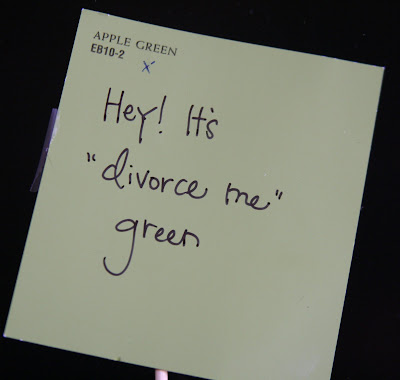 APPLE GREEN
EB10-2
X
Hey! It's
"divorce me"
green